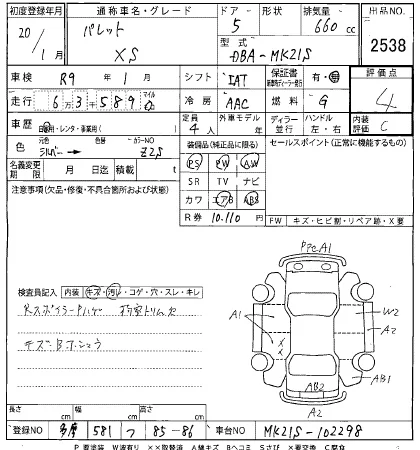 初度登録年月 通称車名・グレード ドア 形状 排気量 出品NO.
20/1月 パレット XS 5 660cc 2538
型式 DBA-MK21S
車検 R9年1月 シフト IAT 保証書 有・無 評価点
走行 63589 マイル シ 冷房 AAC 燃料 G 4
車歴 自家用・レンタ・事業用( ) 定員 4人 外車モデル 年 ディーラー 並行 ハンドル 左・右 内装評価 C
色 元色 シルバー 色替 カラーNO Z2S 装備品(純正品に限る) セールスポイント(正常に機能するもの)
名義変更期限 月 日迄 積載 t PS PW AW
注意事項(欠品・修復・不具合箇所および状態) SR TV ナビ
カワ エアB ABS
R券 10,110円 FW キズ・ヒビ割・リペア跡・X要
PPC A1
検査員記入 内装 キズ・汚レ・コゲ・穴・スレ・キレ
A1 W2 A2
キズ・
AB1
AB2
A2
長さ cm 幅 cm 高さ cm
登録NO 多摩 581 つ 85-86 車台NO MK21S-102298
P要塗装 W波有り XX取替済 A線キズ Bヘコミ Sサビ X要交換 C腐食